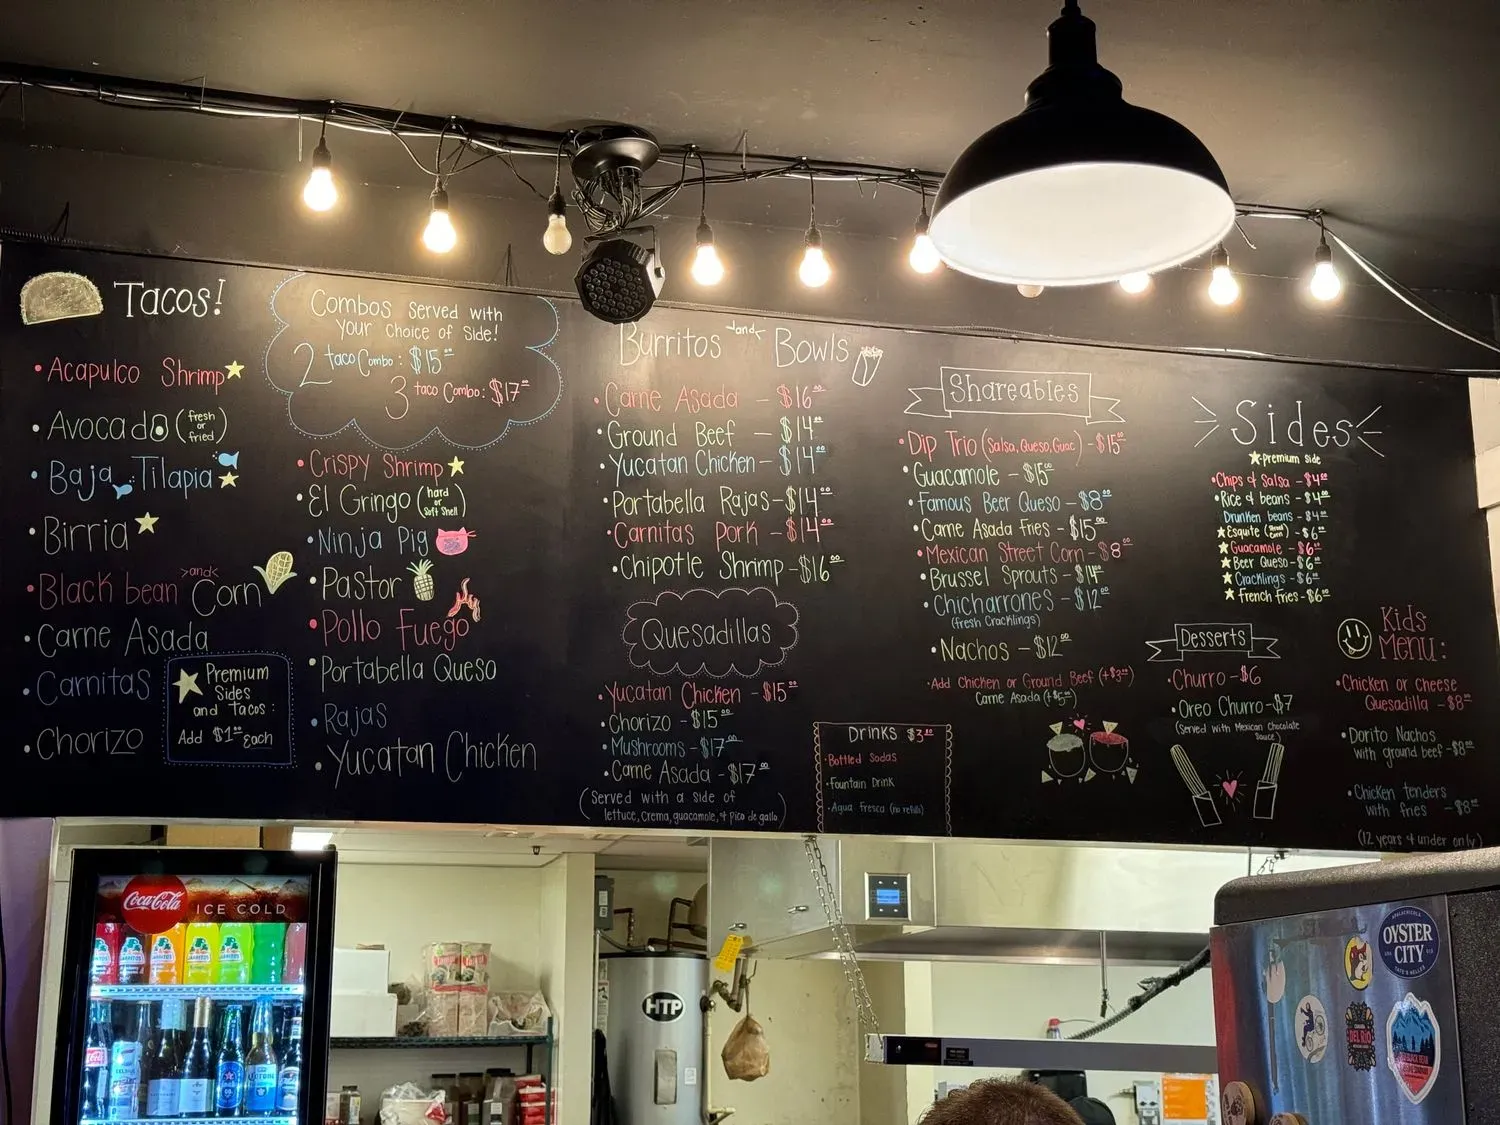 Tacos!
• Acapulco Shrimp
• Avocado (fresh or fried)
• Baja Tilapia
• Birria
• Black bean >and< Corn
• Carne Asada
• Carnitas
• Chorizo
Premium
Sides
and Tacos:
Add $1.00 each
Combos served with
your choice of Side!
2 taco Combo: $15.00
3 taco Combo: $17.00
• Crispy Shrimp
• El Gringo (hard or Soft Shell)
• Ninja Pig
• Pastor
• Pollo Fuego
• Portabella Queso
• Rajas
• Yucatan Chicken
Burritos -and- Bowls
• Carne Asada - $16.00
• Ground Beef - $14.00
• Yucatan Chicken - $14.00
• Portabella Rajas - $14.00
• Carnitas Pork - $14.00
• Chipotle Shrimp - $16.00
Quesadillas
• Yucatan Chicken - $15.00
• Chorizo - $15.00
• Mushrooms - $17.00
• Carne Asada - $17.00
(Served with a side of
lettuce, Crema, guacamole, + Pico de gallo)
Drinks $3
• Bottled Sodas
• Fountain Drink
• Aqua Fresca (no refills)
Shareables
• Dip Trio (Salsa, Queso, Guac) - $15.00
• Guacamole - $15.00
• Famous Beer Queso - $8.00
• Carne Asada Fries - $15.00
• Mexican Street Corn - $8.00
• Brussel Sprouts - $14.00
• Chicharrones - $12.00
(fresh Cracklings)
• Nachos - $12.00
• Add Chicken or Ground Beef (+$3.00)
Carne Asada (+$5.00)
Sides
-premium side
• Chips & Salsa - $4.00
• Rice & beans - $4.00
Drunken beans - $4.00
Esquite (Street Corn) - $6.00
Guacamole - $6.00
Beer Queso - $6.00
Cracklings - $6.00
French Fries - $6.00
Desserts
• Churro - $6
• Oreo Churro - $7
(Served with Mexican Chocolate
Sauce)
Kids
Menu:
• Chicken or Cheese
Quesadilla - $8.00
• Dorito Nachos
with ground beef - $8.00
• Chicken tenders
with fries - $8.00
(12 years & under only)
Coca-Cola
ICE COLD
JARRITOS
JARRITOS
JARRITOS
JARRITOS
JARRITOS
Corona
HTP
APALACHICOLA
OYSTER
CITY
DEL RIO